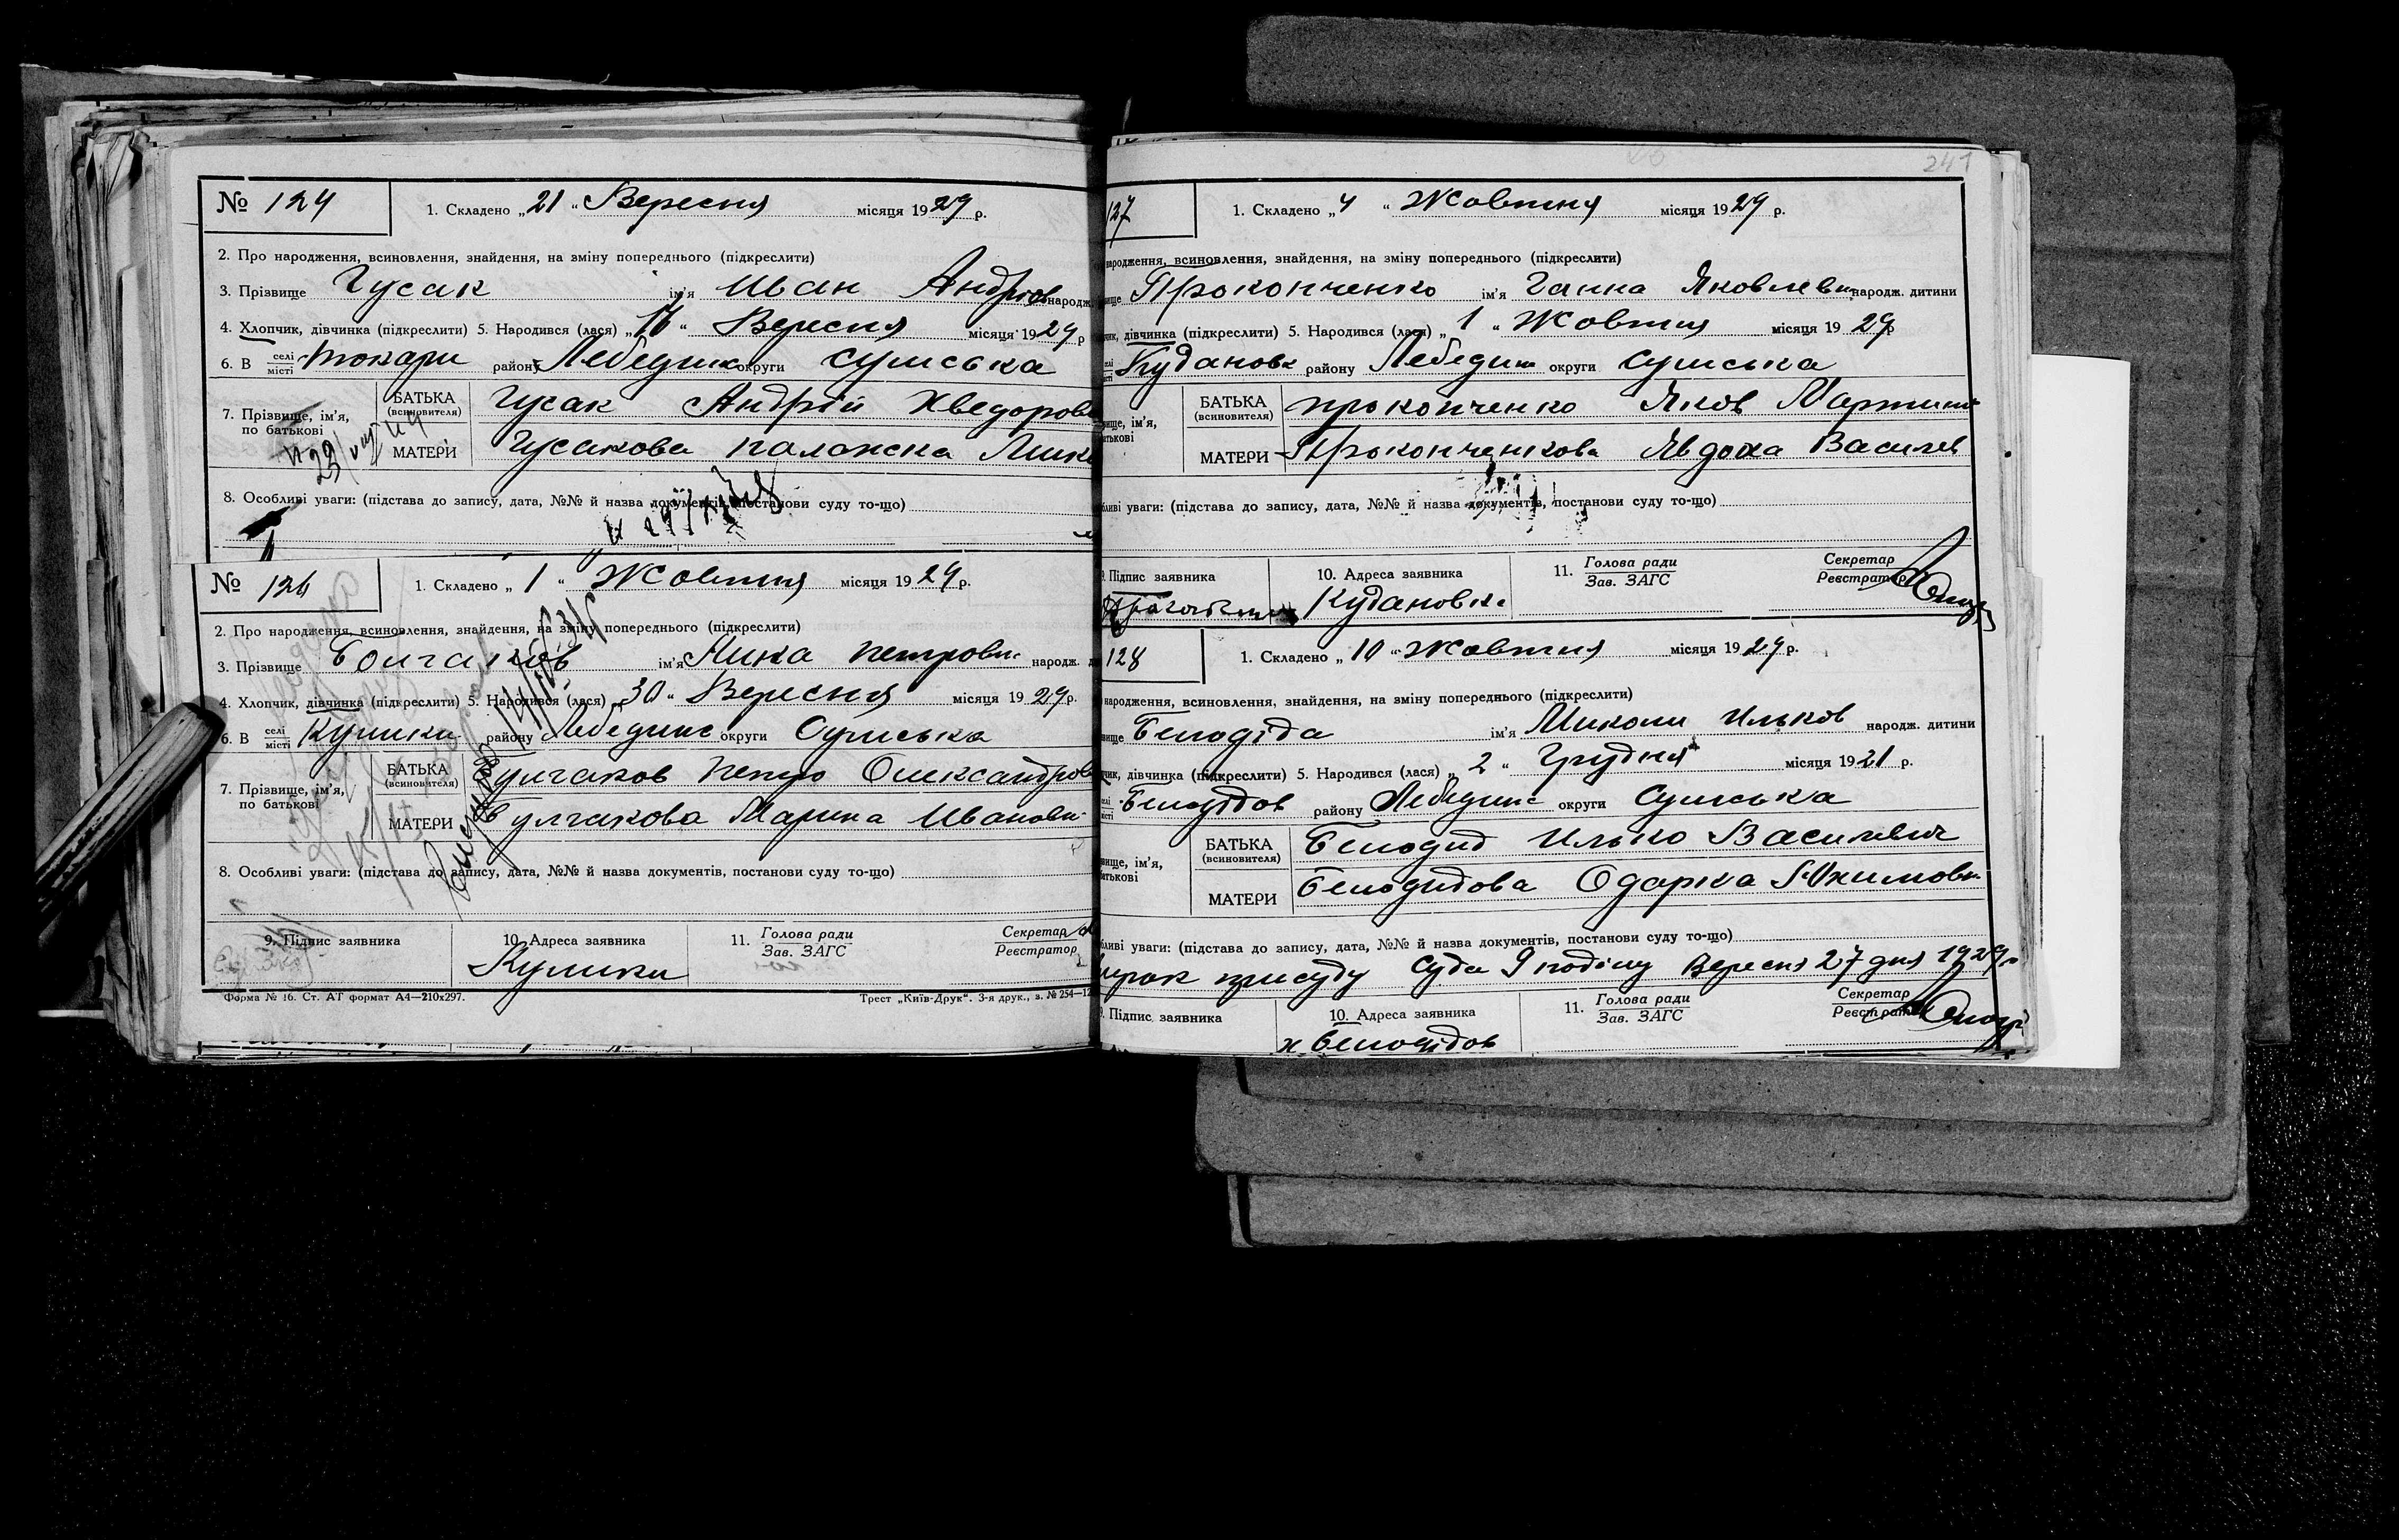 № 124
1. Складено „21“ Вересня місяця 1929 р.
2. Про народження, всиновлення, знайдення, на зміну попереднього (підкреслити)
3. Прізвище Гусак ім'я Иван Андріов народж.
4. Хлопчик, дівчинка (підкреслити) 5. Народився (лася) „ “ Вересня місяця 1929 р
6. В селі місті Токари району Лебединс округи Сумська
7. Прізвище, ім'я, по батькові
БАТЬКА (всиновителя) Гусак Андрій Хведорови
МАТЕРИ Гусакова Палажка
8. Особливі уваги: (підстава до запису, дата, №№ й назва документів, постанови суду то-що)
№ 126
1. Складено „1“ Жовтня місяця 1929 р.
2. Про народження, всиновлення, знайдення, на зміну попереднього (підкреслити)
3. Прізвище ім'я Петровн народж.
4. Хлопчик, дівчинка (підкреслити) 5. Народився (лася) „30“ Вересня місяця 1929 р.
6. В селі місті Кулики району Лебединс округи Сумська
7. Прізвище, ім'я, по батькові
БАТЬКА (всиновителя) Булгаков Петро Олександров
МАТЕРИ Булгакова Марина Ивановн
8. Особливі уваги: (підстава до запису, дата, №№ й назва документів, постанови суду то-що)
9. Підпис заявника
10. Адреса заявника
Кулики
11. Голова ради
Зав. ЗАГС
Секретар
Реєстратор
Форма № 16. Ст. АТ формат А4—210х297.
Трест „Київ-Друк“. 3-я друк., з. № 254—12
241
127
1. Складено „4“ Жовтня місяця 1929 р.
народження, всиновлення, знайдення, на зміну попереднього (підкреслити)
Прокопченко ім'я Ганна Яковлевн народж. дитини
дівчинка (підкреслити) 5. Народився (лася) „1“ Жовтня місяця 1929 р
Кудановк району Лебедин округи Сумська
БАТЬКА (всиновителя) Прокопченко Яков Мартин
МАТЕРИ Прокопченкова Явдоха Василев
уваги: (підстава до запису, дата, №№ й назва документів, постанови суду то-що)
Підпис заявника
10. Адреса заявника
Кудановк
11. Голова ради
Зав. ЗАГС
Секретар
Реєстратор
128
1. Складено „10“ Жовтня місяця 1929 р.
народження, всиновлення, знайдення, на зміну попереднього (підкреслити)
Белодіда ім'я Миколи Ильков народж. дитини
дівчинка (підкреслити) 5. Народився (лася) „2“ Грудня місяця 1921 р.
Белодідов району Лебединс округи Сумська
БАТЬКА (всиновителя) Белодид Илько Василевич
МАТЕРИ Белодидова Одарка Юхимовн
уваги: (підстава до запису, дата, №№ й назва документів, постанови суду то-що)
присуду Суда Вересня 27 дня 1929 р
Підпис заявника
10. Адреса заявника
х Белодідов
11. Голова ради
Зав. ЗАГС
Секретар
Реєстратор